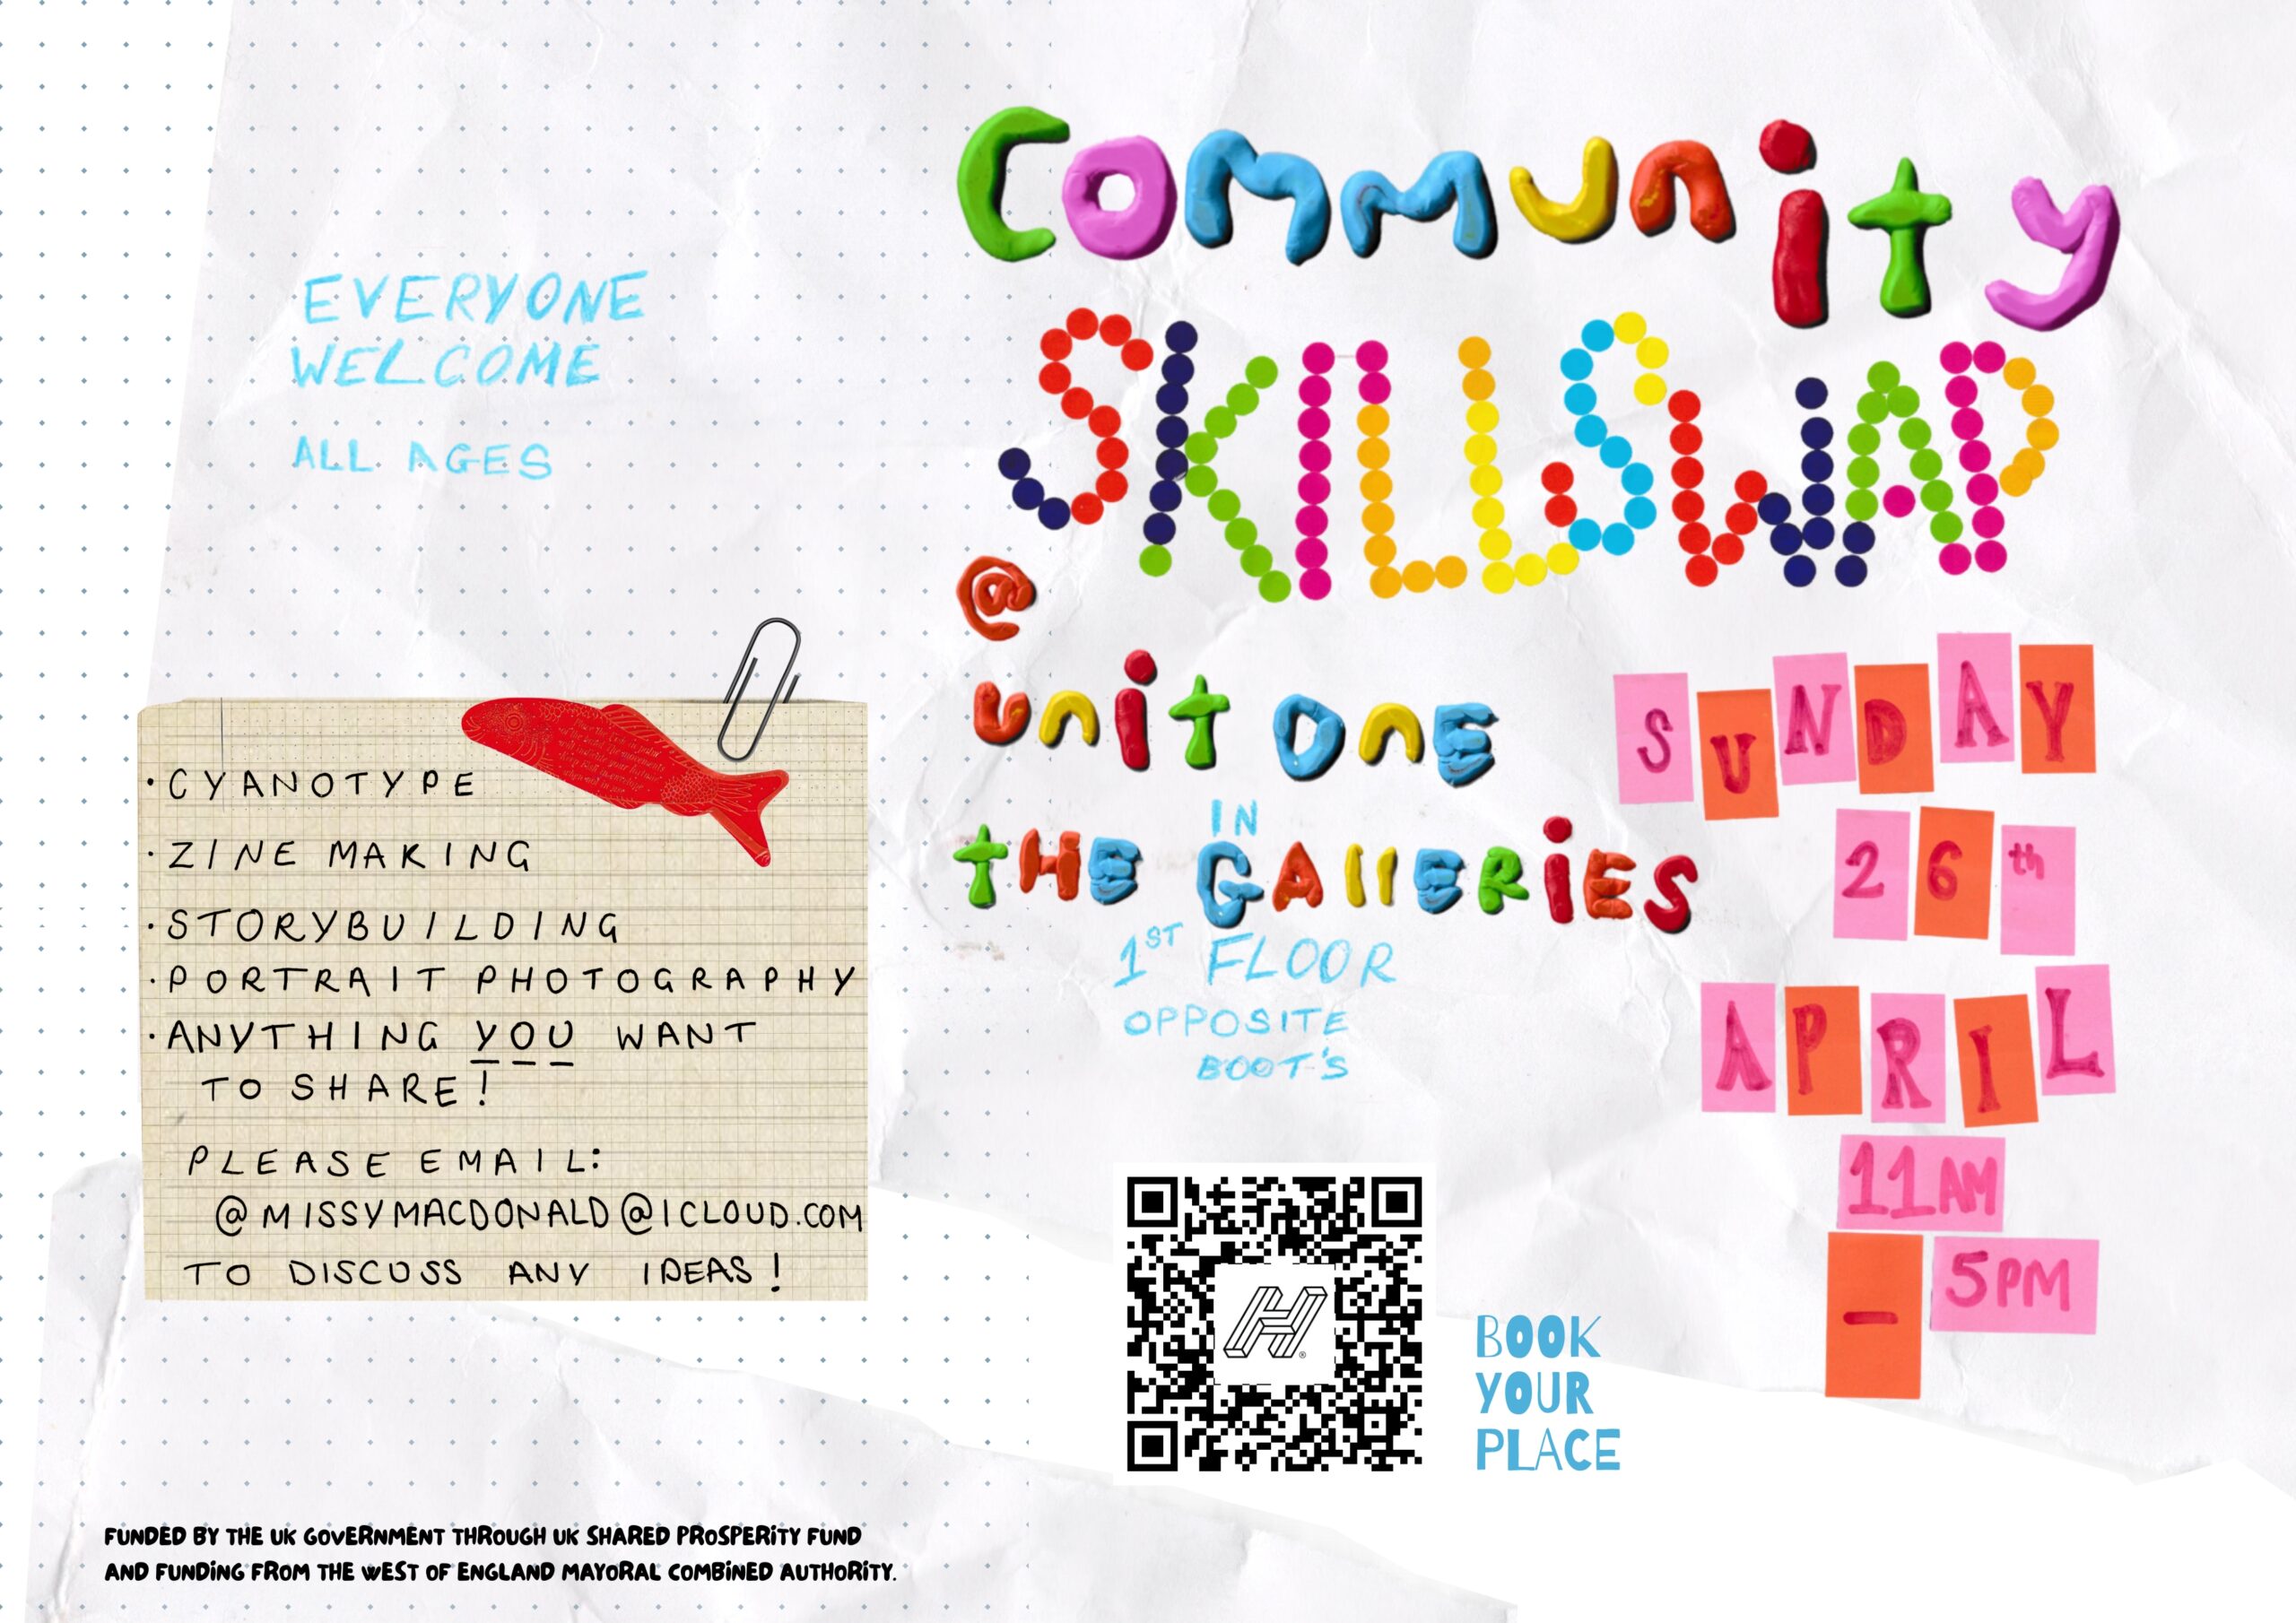 EVERYONE
WELCOME
ALL AGES
COMMUNiTY
SKILLSWAP
@
UNiT ONE
IN
THE GALLERiES
1ST FLOOR
OPPOSITE
BOOT'S
SUNDAY
26th
APRIL
11AM
– 5PM
· CYANOTYPE
· ZINE MAKING
· STORYBUILDING
· PORTRAIT PHOTOGRAPHY
· ANYTHING YOU WANT
TO SHARE!
PLEASE EMAIL:
@MISSYMACDONALD@ICLOUD.COM
TO DISCUSS ANY IDEAS!
BOOK
YOUR
PLACE
H®
FUNDED BY THE UK GOVERNMENT THROUGH UK SHARED PROSPERiTY FUND
AND FUNDiNG FROM THE WEST OF ENGLAND MAYORAL COMBiNED AUTHORiTY.